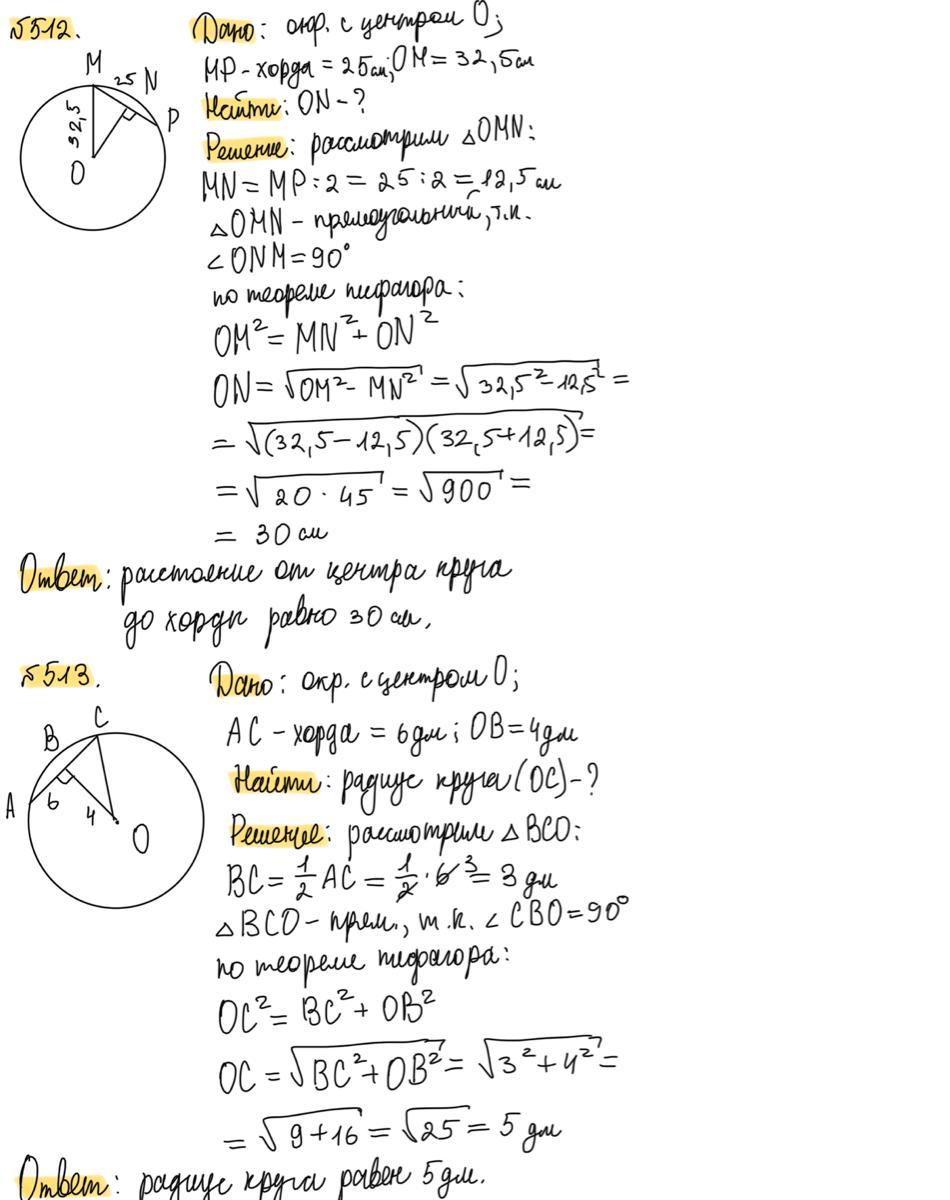 №512.
Дано: окр. с центром O;
M
25 N
P
32,5
O
MP - хорда = 25 см; OM = 32,5 см
Найти: ON - ?
Решение: рассмотрим △OMN:
MN = MP : 2 = 25 : 2 = 12,5 см
△OMN - прямоугольный, т.к.
∠ONM = 90°
по теореме пифагора:
OM² = MN² + ON²
ON = √(OM² - MN²) = √(32,5² - 12,5²) =
= √((32,5 - 12,5)(32,5 + 12,5)) =
= √(20 · 45) = √900 =
= 30 см
Ответ: расстояние от центра круга
до хорды равно 30 см.
№513.
Дано: окр. с центром O;
C
B
A
6
4
O
AC - хорда = 6 дм; OB = 4 дм
Найти: радиус круга (OC) - ?
Решение: рассмотрим △BCO:
BC = 1/2 AC = 1/2 · 6 3 = 3 дм
△BCO - прям., т.к. ∠CBO = 90°
по теореме пифагора:
OC² = BC² + OB²
OC = √(BC² + OB²) = √(3² + 4²) =
= √(9 + 16) = √25 = 5 дм
Ответ: радиус круга равен 5 дм.